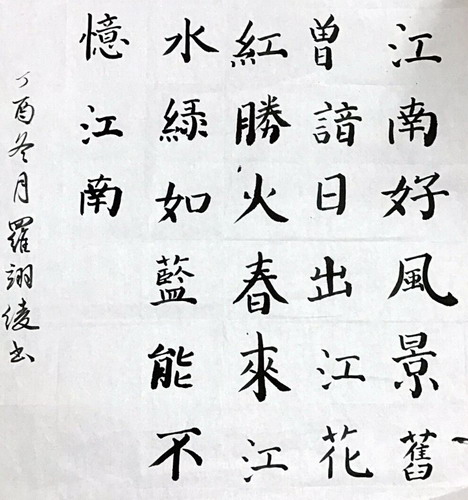 江南好風景舊
曾諳日出江花
紅勝火春來江
水綠如藍能不
憶江南
丁酉冬月羅翊綾书